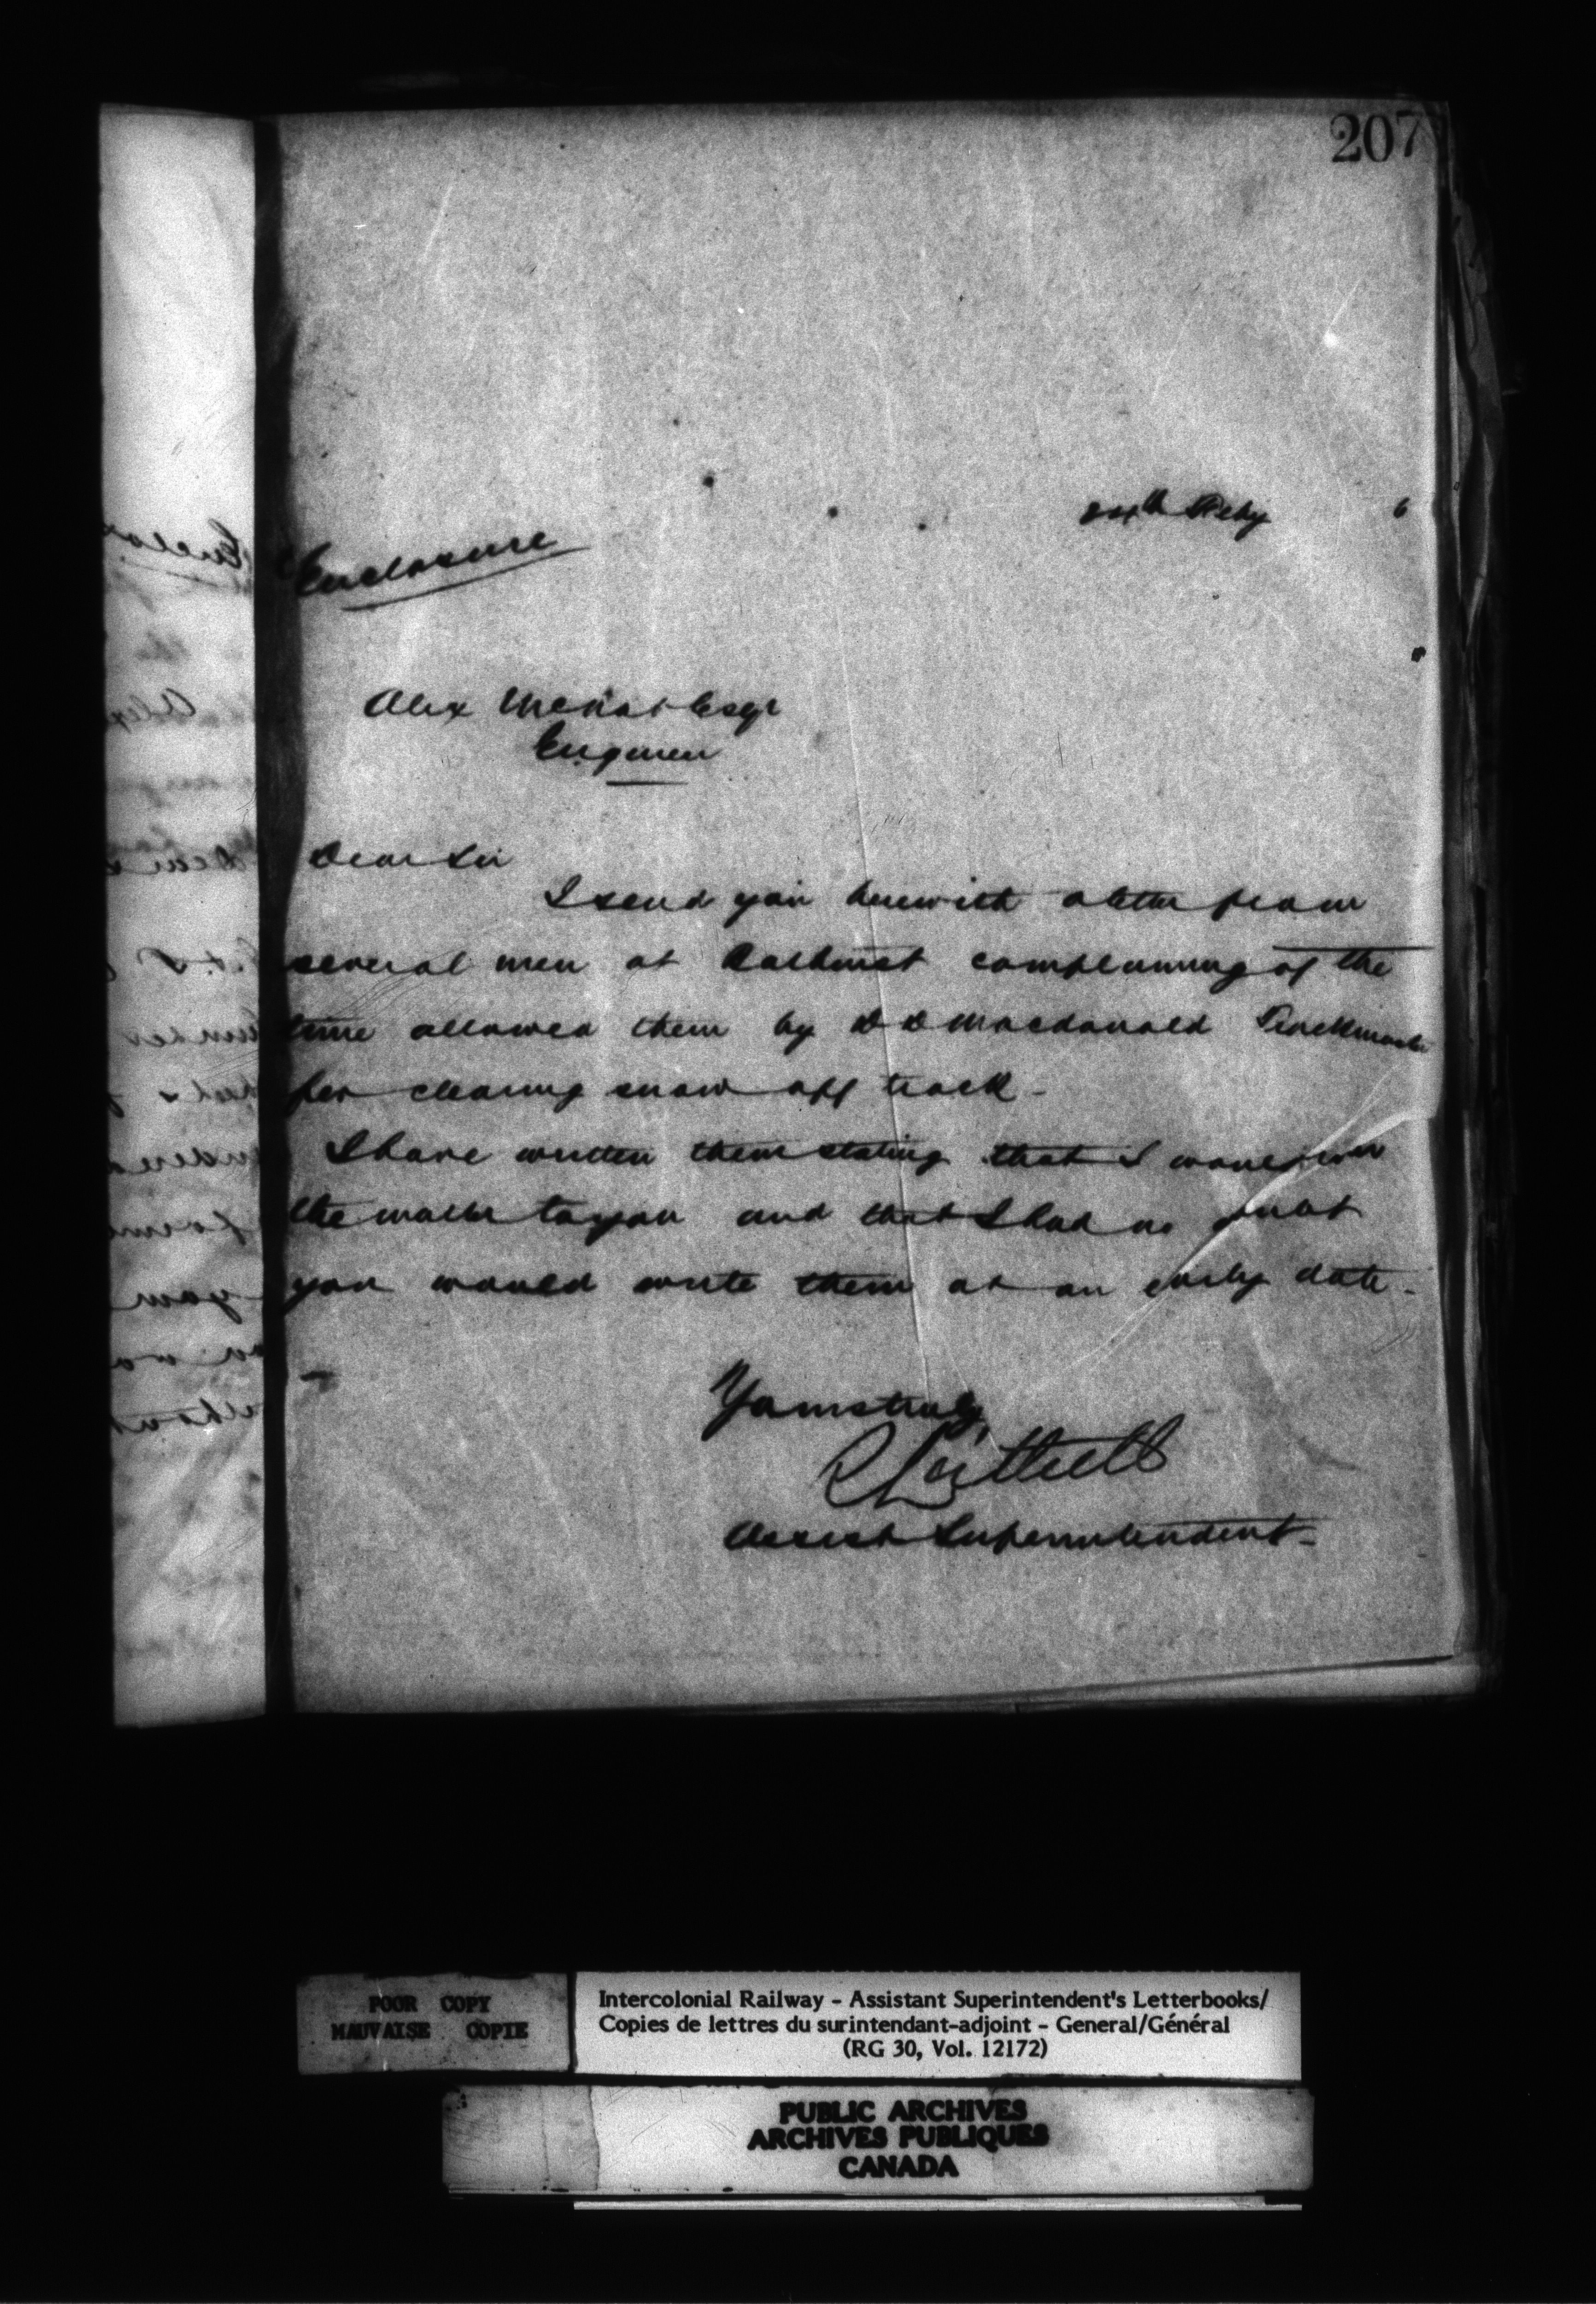 207
24th Feby 6
Enclosure
Alex McNab Esqr
Engineer
Dear Sir
I send you herewith a letter from
several men at Bathurst complaining of the
time allowed them by D D Macdonald Trackmaster
for clearing snow off track -
I have written them stating that I would
the matter to you and that I had no doubt
you would write them at an early date -
Yours truly,
Assist Superintendent -
POOR COPY
MAUVAISE COPIE
Intercolonial Railway - Assistant Superintendent's Letterbooks/
Copies de lettres du surintendant-adjoint - General/Général
(RG 30, Vol. 12172)
PUBLIC ARCHIVES
ARCHIVES PUBLIQUES
CANADA